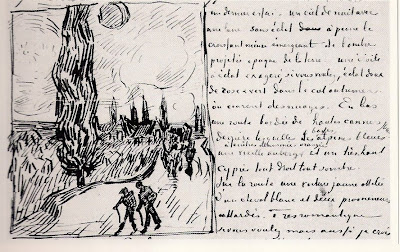 un dernier essai - un ciel de nuit avec
une lune sans éclat à peine le
croissant mince émergeant de l'ombre
projetée opaque de la terre - une étoile
à éclat exagéré si vous voulez, éclat doux
de rose & vert dans le ciel outremer
où courent des nuages. En bas
une route bordée de hautes cannes
derrière lesquelles les basses alpines bleues
une vieille auberge à fenêtres illuminées orangées et un très haut
cyprès tout droit tout sombre.
Sur la route une voiture jaune attelée
d'un cheval blanc et deux promeneurs
attardés. Très romantique
si vous voulez mais aussi je crois